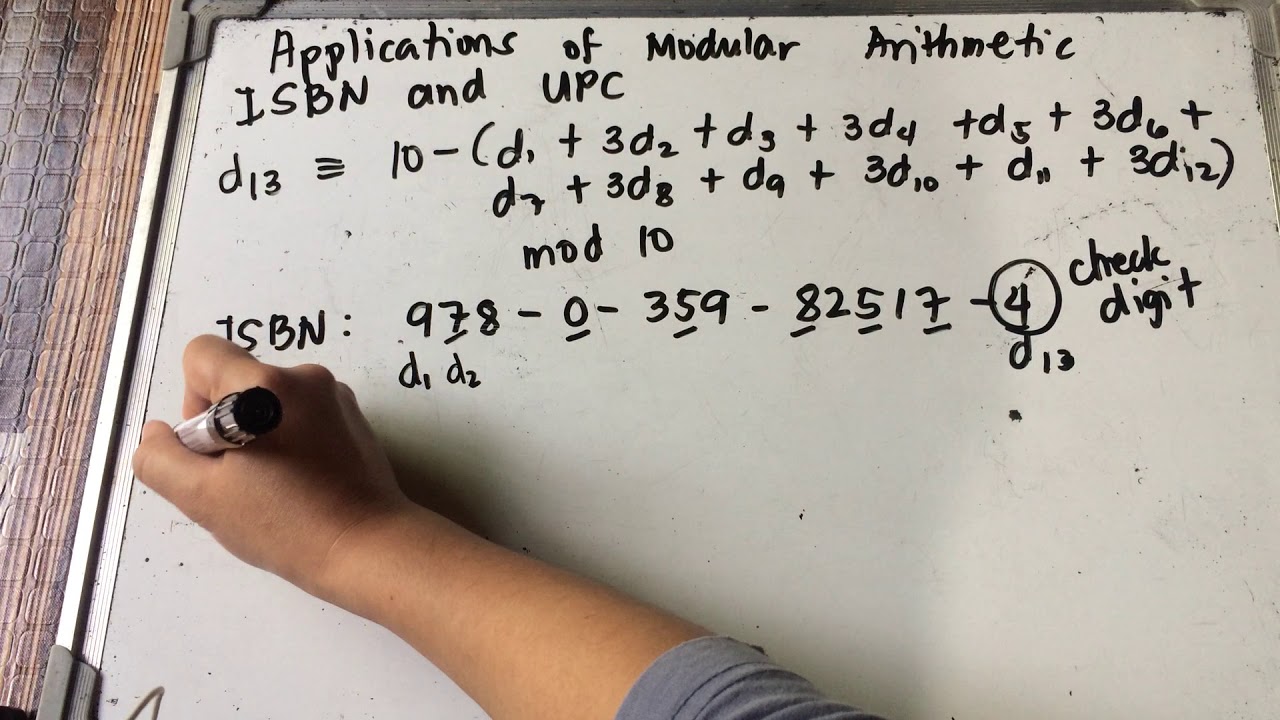 Applications of Modular Arithmetic
ISBN and UPC
d₁₃ ≡ 10 - (d₁ + 3d₂ + d₃ + 3d₄ + d₅ + 3d₆ +
d₇ + 3d₈ + d₉ + 3d₁₀ + d₁₁ + 3d₁₂)
mod 10
ISBN: 978 - 0 - 359 - 82517 - 4 check digit
d₁ d₂ d₁₃